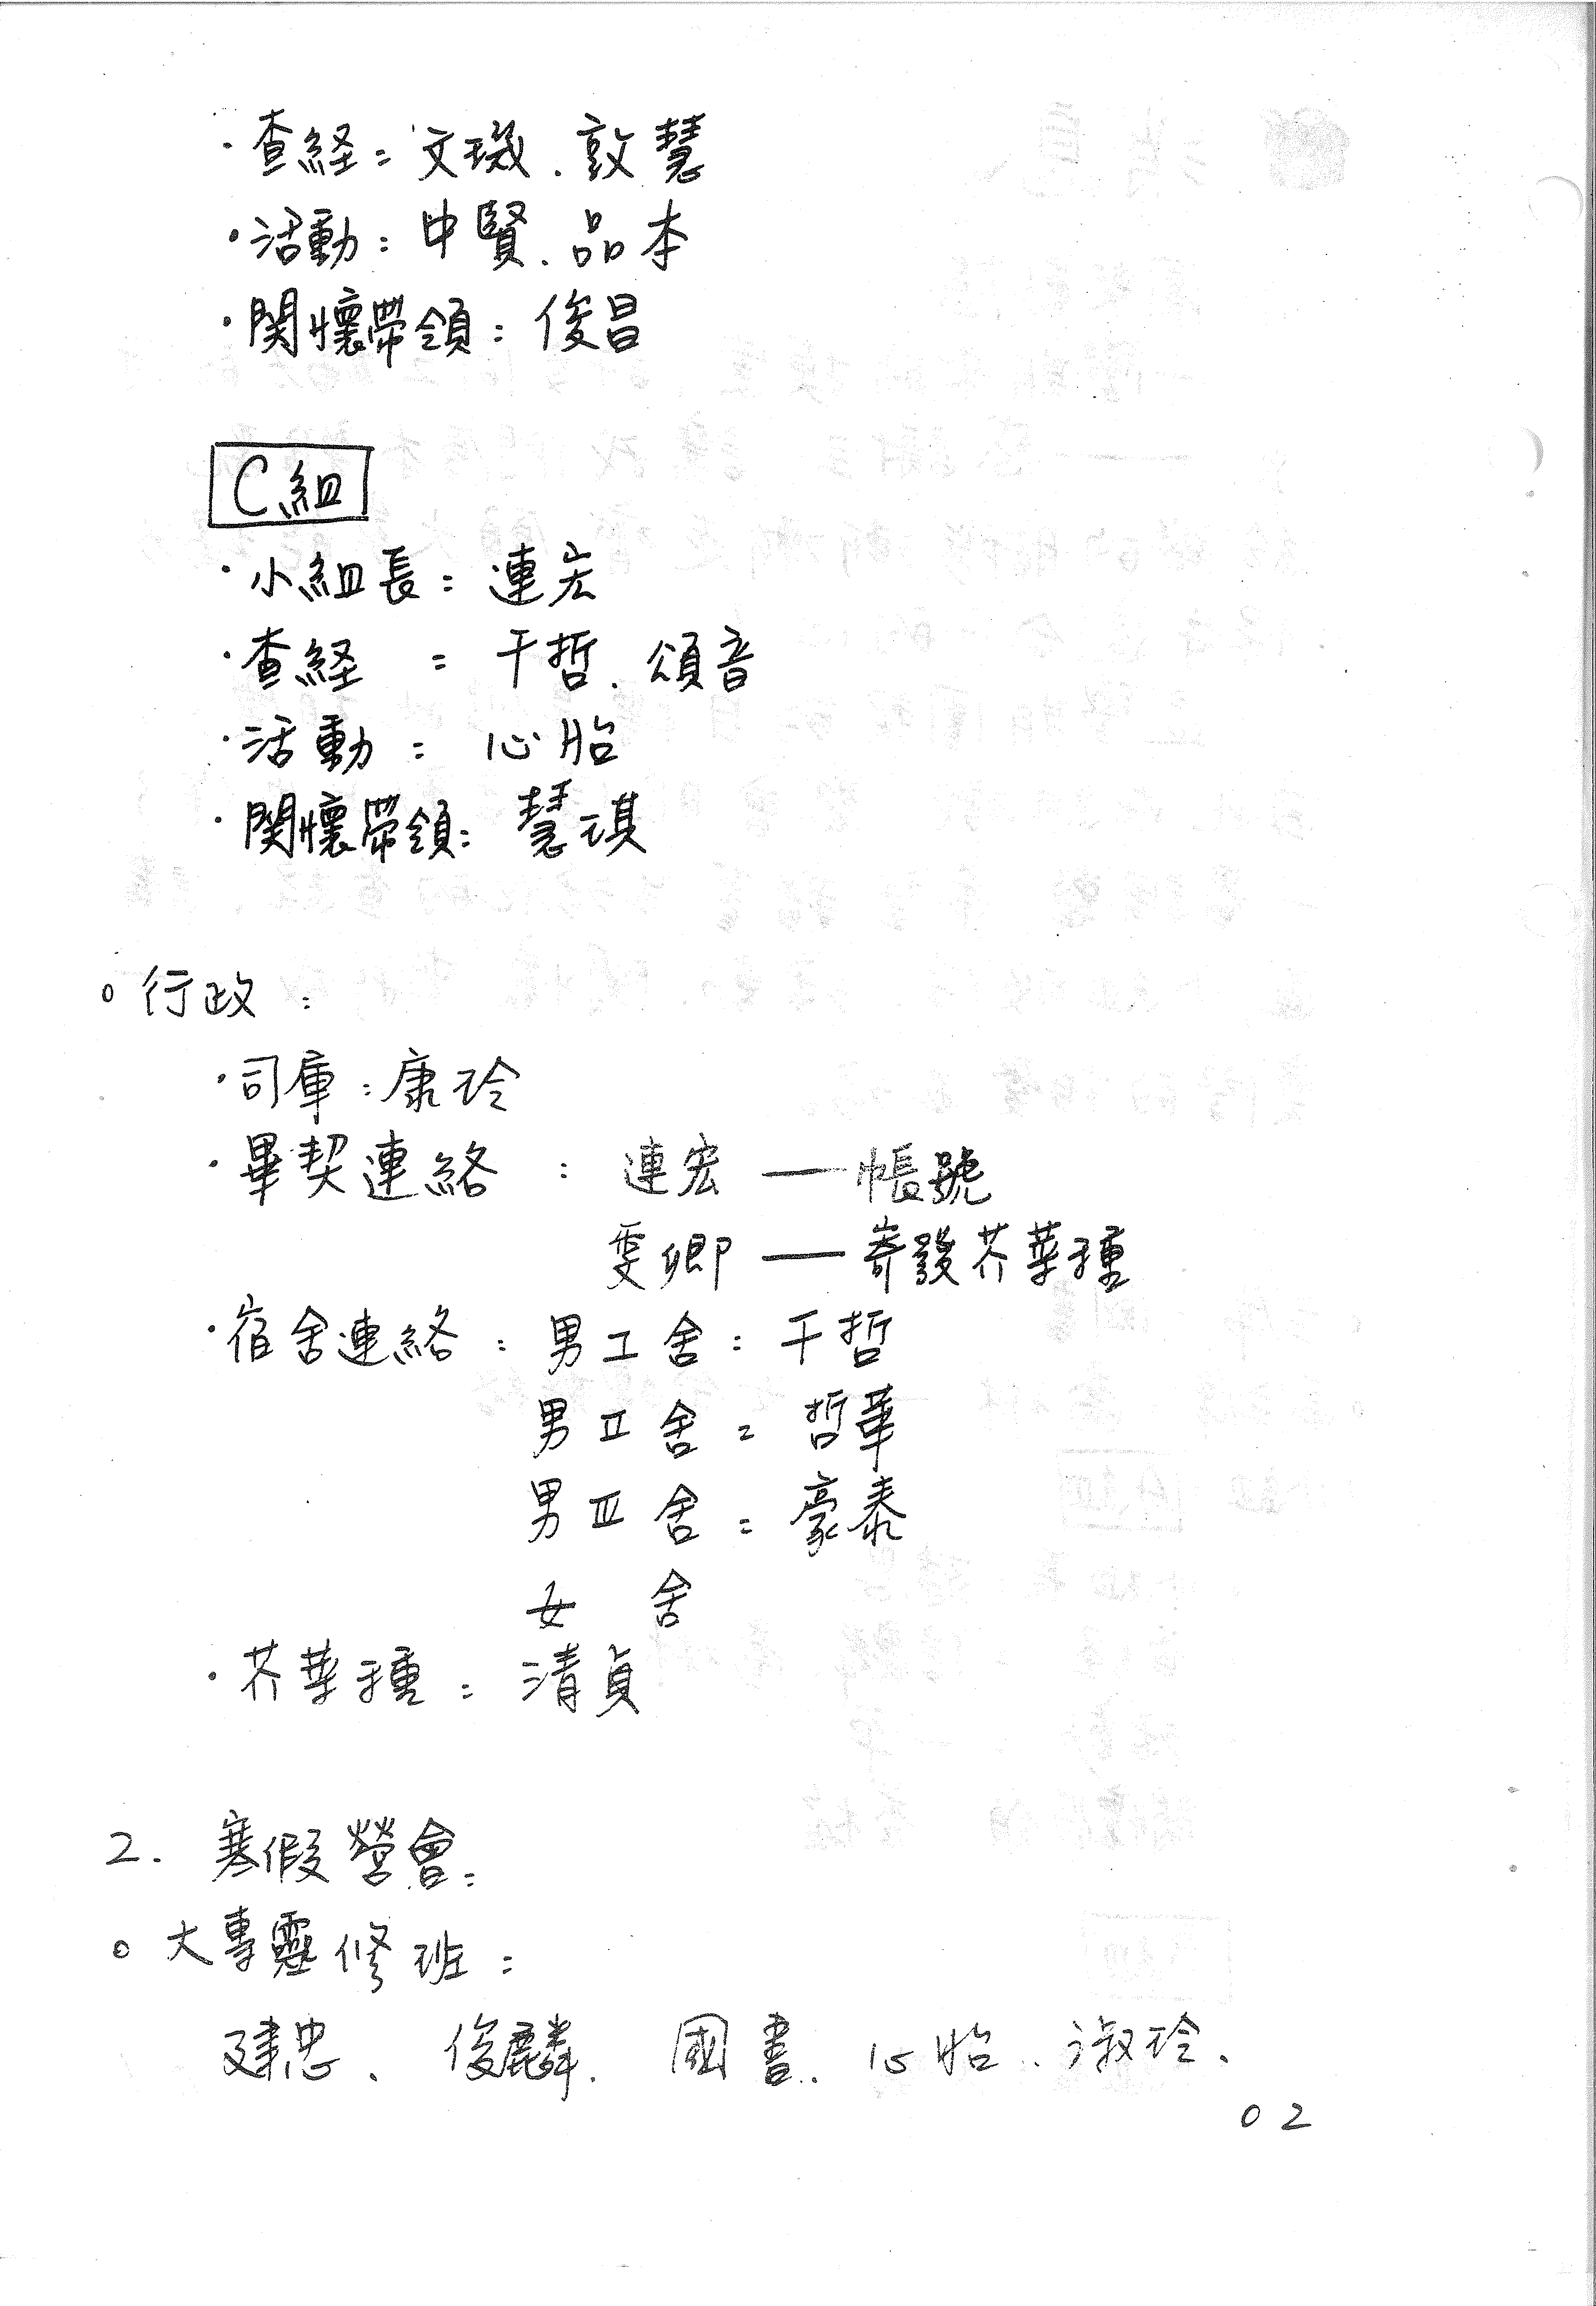 ·查経：文璣、敦慧
·活動：中賢、品本
·関懷帶領：俊昌
C組
·小組長：連宏
·查経：干哲、頌音
·活動：心怡
·関懷帶領：慧琪
○行政：
·司庫：康玲
·畢契連絡：連宏——帳號
雯卿——寄發芥菜種
·宿舍連絡：男I舍：干哲
男II舍：哲華
男III舍：豪泰
女 舍
·芥菜種：清貞
2. 寒假營會：
○大專靈修班：
建忠、俊麟、國書、心怡、淑玲、
02